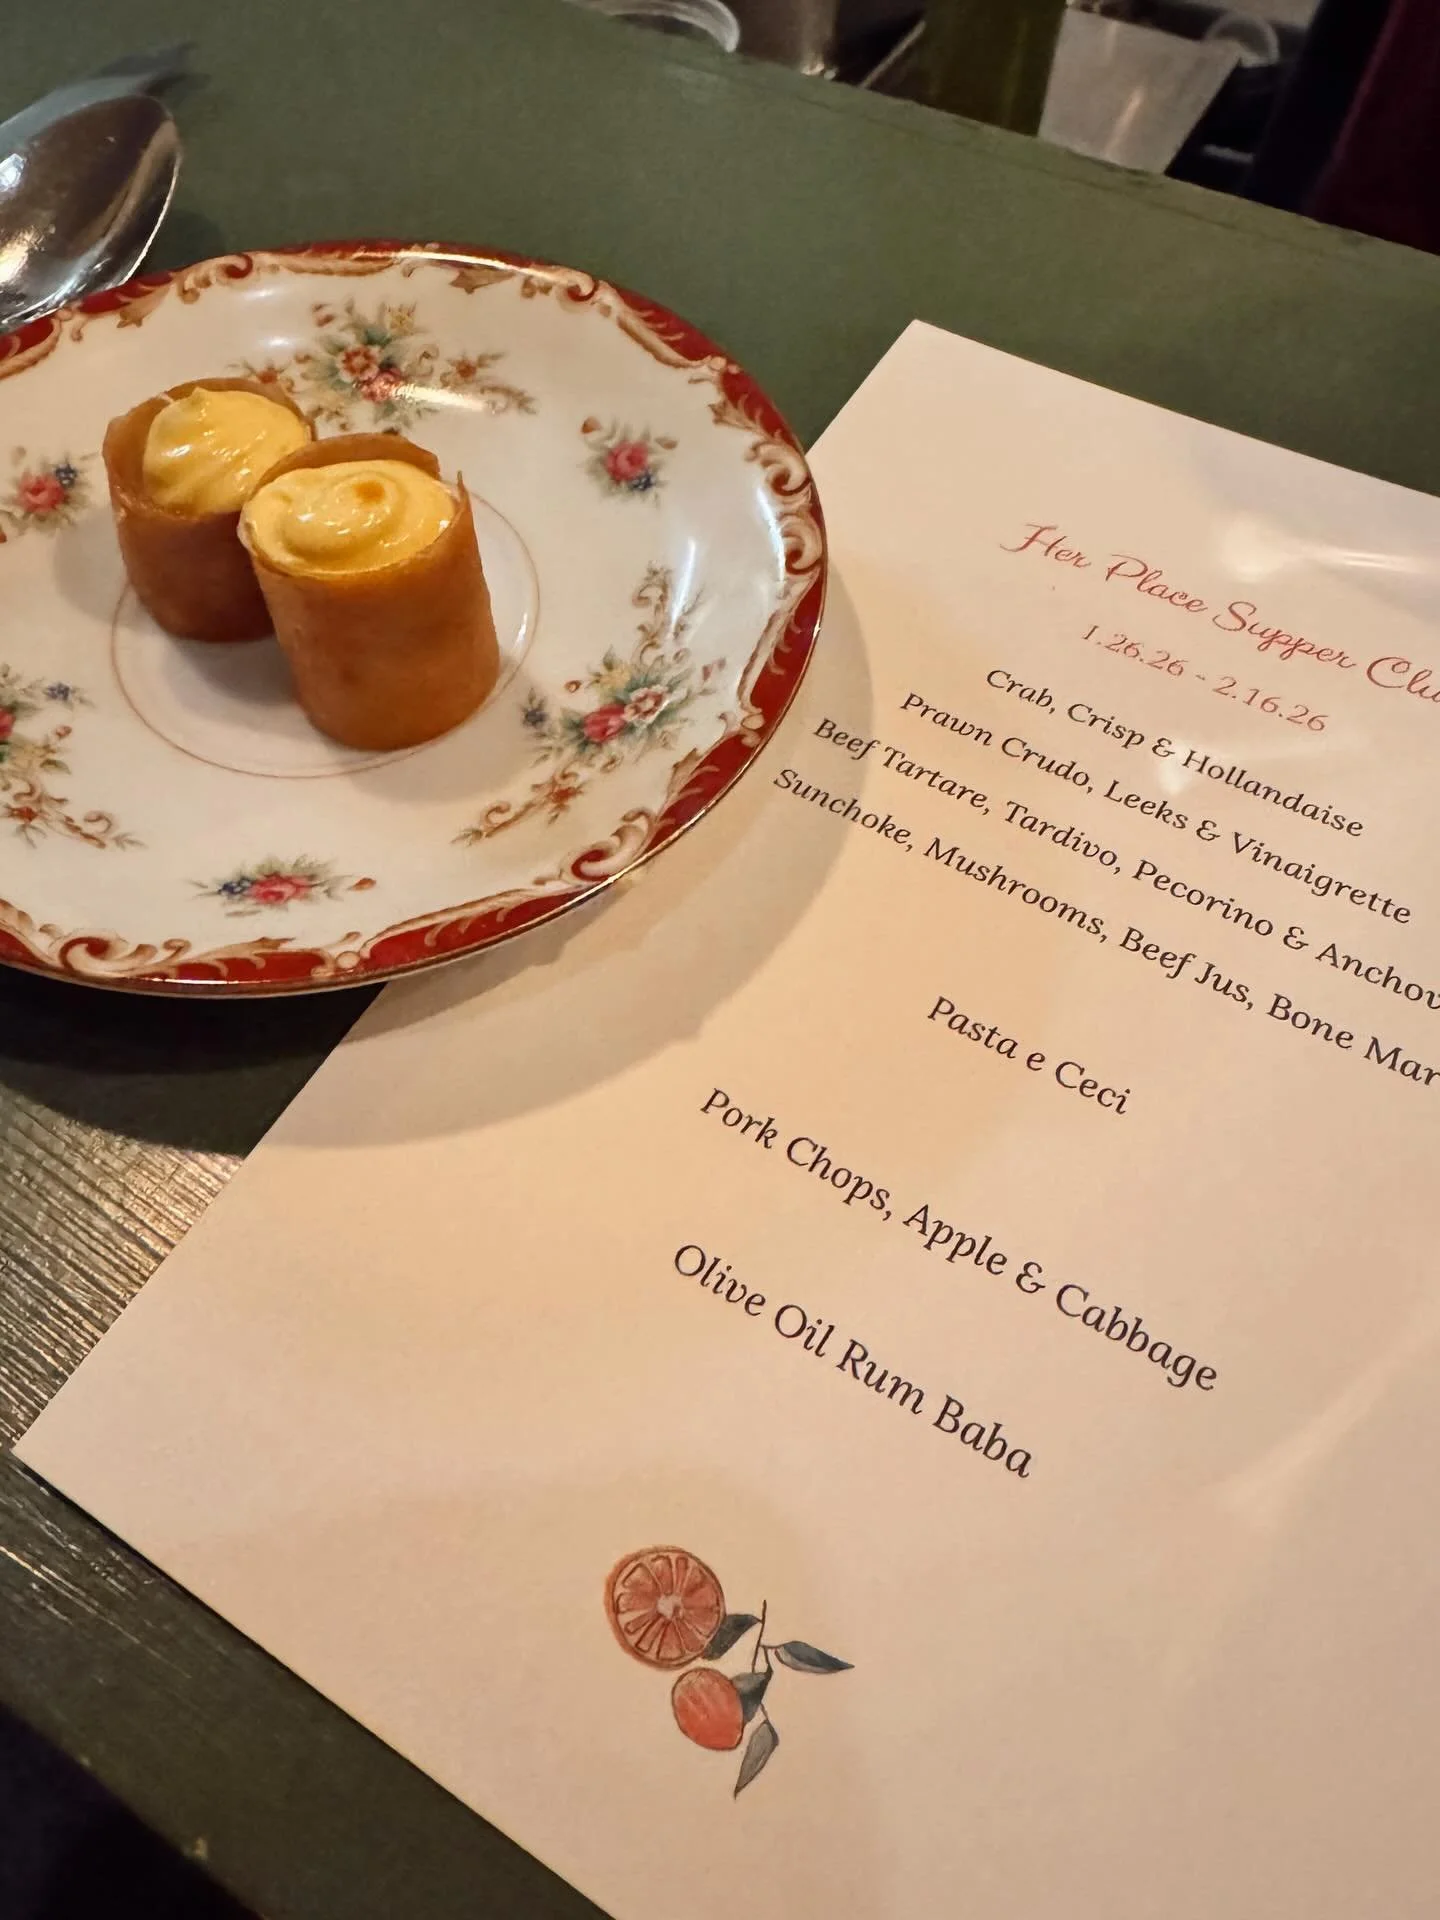 Her Place Supper Clu
1.26.26 - 2.16.26
Crab, Crisp & Hollandaise
Prawn Crudo, Leeks & Vinaigrette
Beef Tartare, Tardivo, Pecorino & Anchov
Sunchoke, Mushrooms, Beef Jus, Bone Mar
Pasta e Ceci
Pork Chops, Apple & Cabbage
Olive Oil Rum Baba